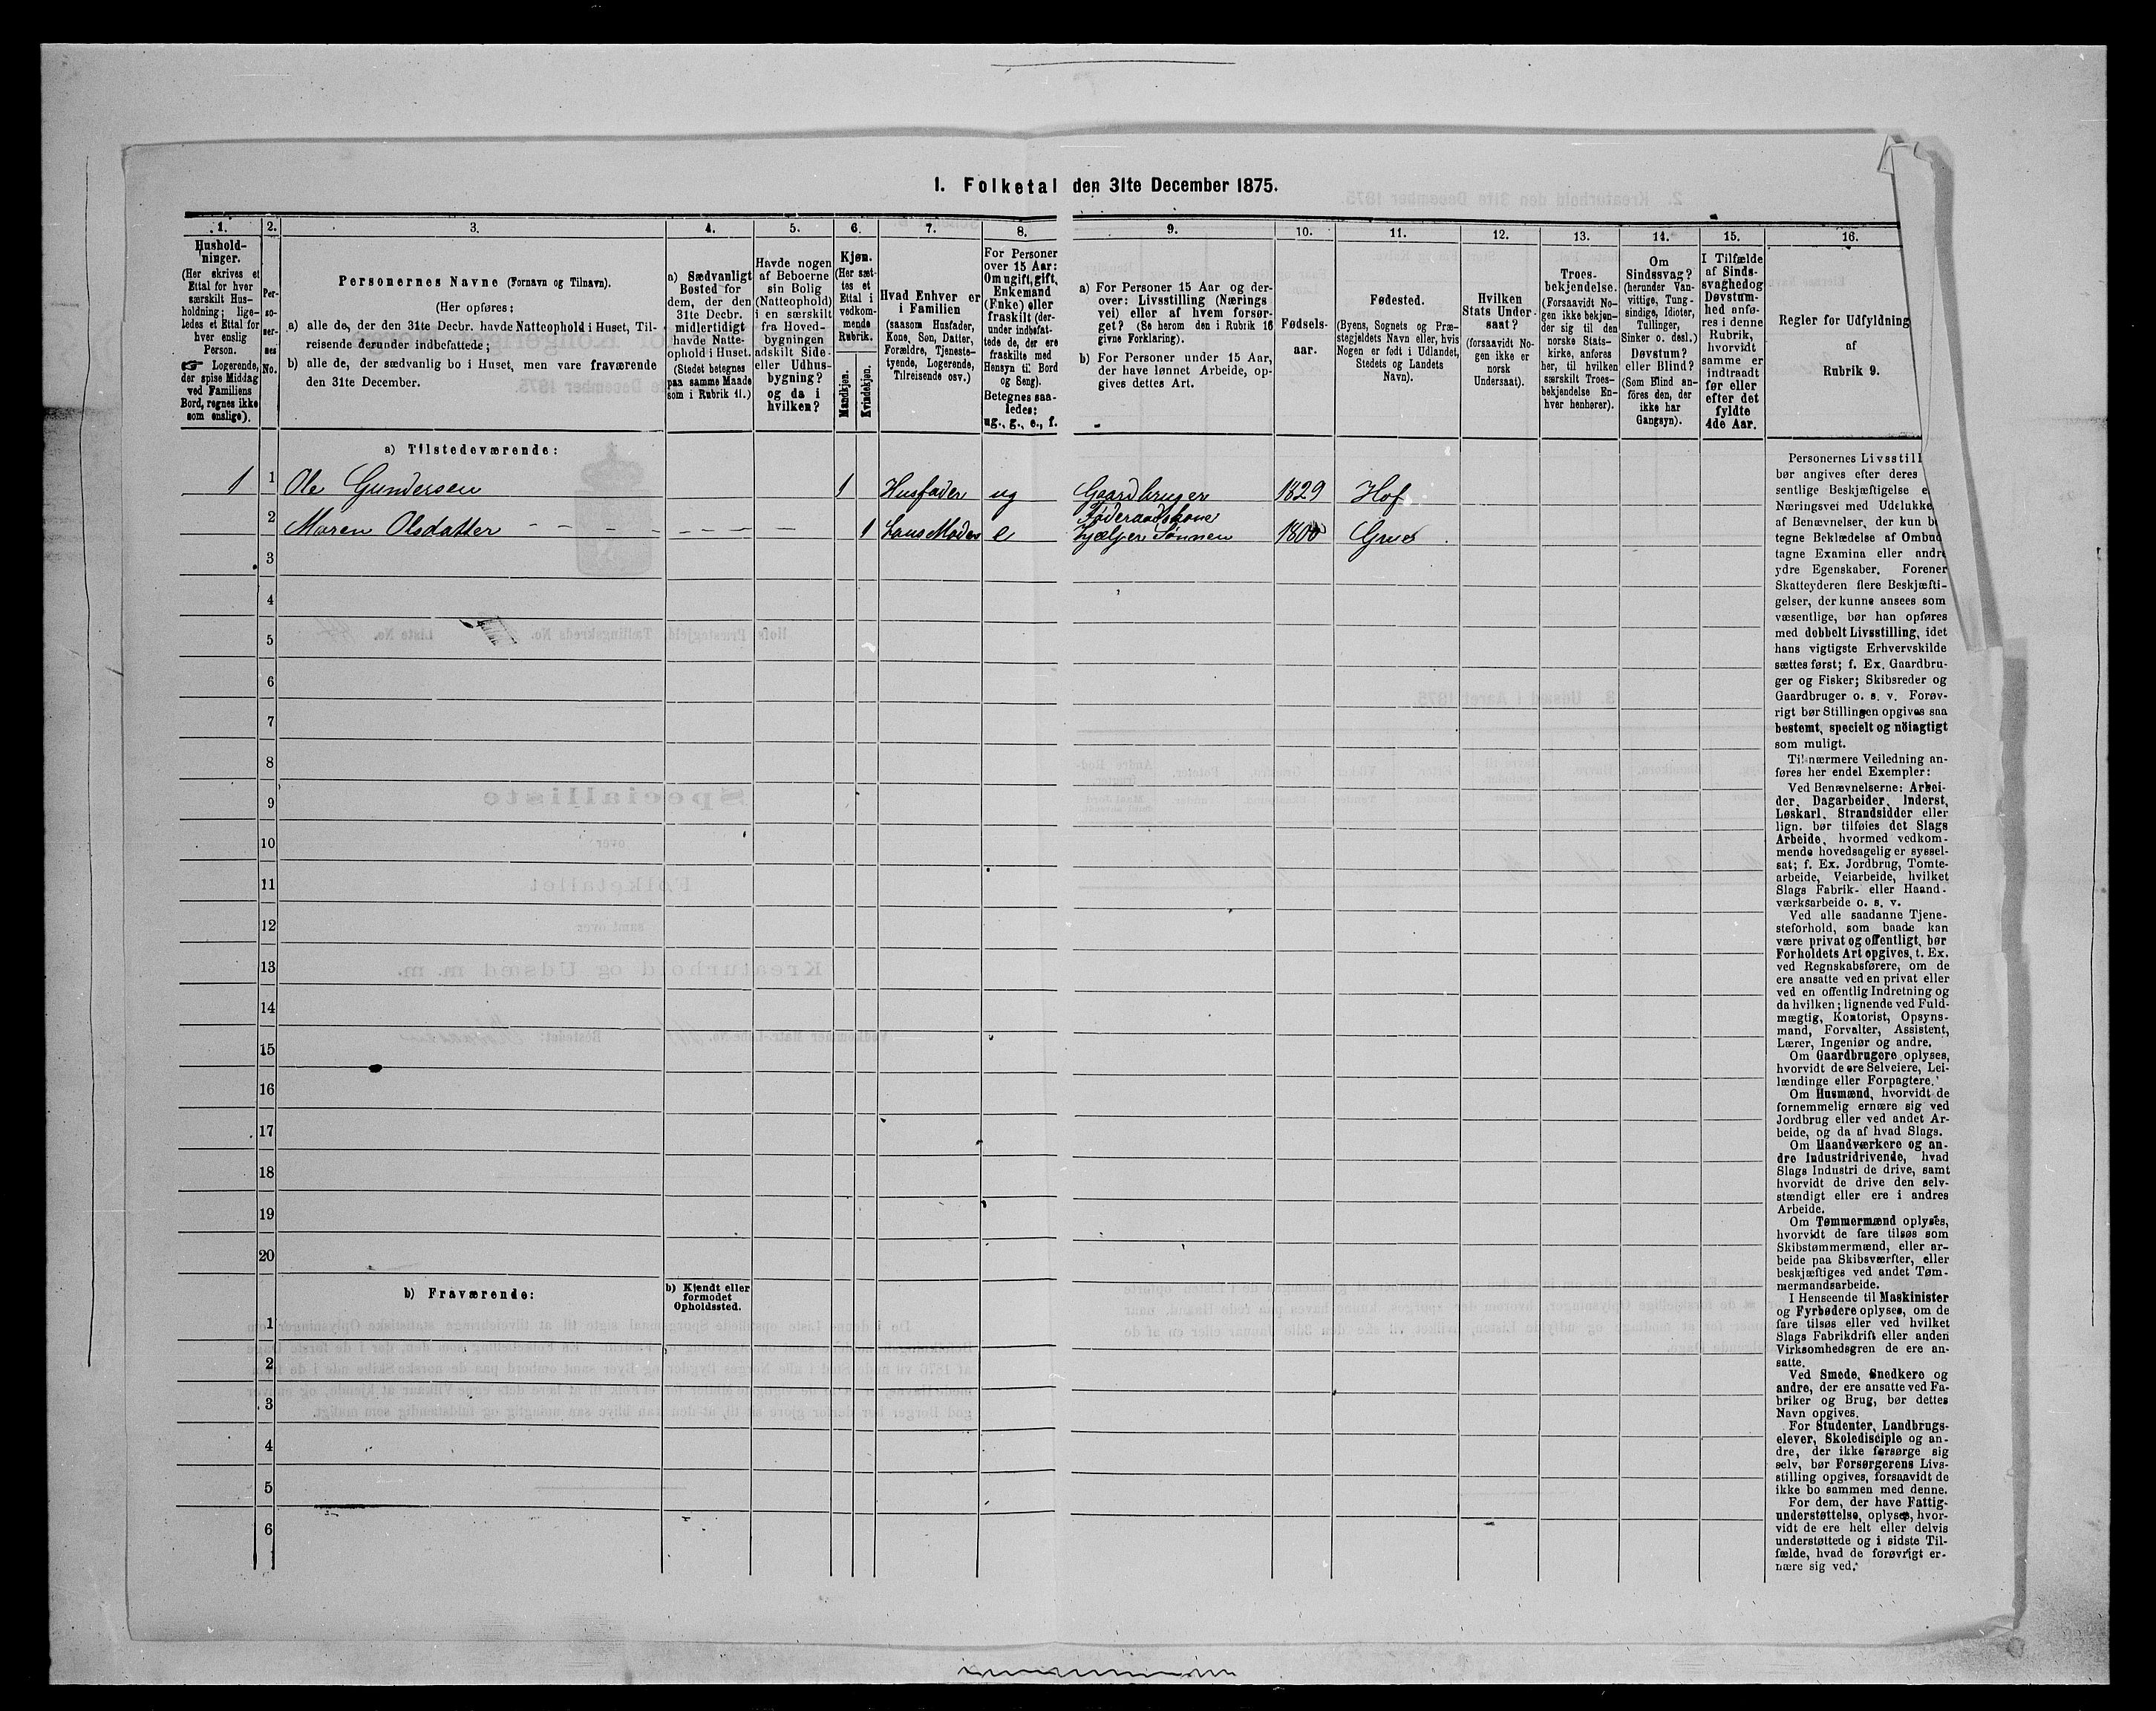 1. Folketal den 31te December 1875.
1. 2. 3. 4. 5. 6. 7. 8. 9. 10. 11. 12. 13. 14. 15. 16.
Hushold-
ninger.
(Her skrives et
Ettal for hver
særskilt Hus-
holdning; lige-
ledes et Ettal for
hver enslig
Person.
☞ Logerende,
der spise Middag
ved Familiens
Bord, regnes ikke
som enslige).
Per-
so-
ner-
nes
No.
Personernes Navne (Fornavn og Tilnavn).
(Her opføres:
a) alle de, der den 31te Decbr. havde Natteophold i Huset, Til-
reisende derunder indbefattede;
b) alle de, der sædvanlig bo i Huset, men vare fraværende
den 31te December.
a) Sædvanligt
Bosted for
dem, der den
31te Decbr.
midlertidigt
havde Natte-
ophold i Huset.
(Stedet betegnes
paa samme Maade
som i Rubrik 11.)
Havde nogen
af Beboerne
sin Bolig
(Natteophold)
i en særskilt
fra Hoved-
bygningen
adskilt Side-
eller Udhus-
bygning?
og da i
hvilken?
Kjøn.
(Her sæt-
tes et
Ettal i
vedkom-
mende
Rubrik.
Mandkjøn.
Kvindekjøn.
Hvad Enhver er
i Familien
(saasom Husfader,
Kone, Søn, Datter,
Forældre, Tjeneste-
tyende, Logerende,
Tilreisende osv.)
For Personer
over 15 Aar:
Om ugift, gift,
Enkemand
(Enke) eller
fraskilt (der-
under indbefat-
tede de, der ere
fraskilte med
Hensyn til Bord
og Seng).
Betegnes saa-
ledes:
ug., g., e., f.
a) For Personer 15 Aar og der-
over: Livsstilling (Nærings
vei) eller af hvem forsør-
get? (Se herom den i Rubrik 16
givne Forklaring).
b) For Personer under 15 Aar,
der have lønnet Arbeide, op-
gives dettes Art.
Fødsels-
aar.
Fødested.
(Byens, Sognets og Præ-
stegjeldets Navn eller, hvis
Nogen er født i Udlandet,
Stedets og Landets
Navn).
Hvilken
Stats Under-
saat?
(forsaavidt No-
gen ikke er
norsk
Undersaat).
Troes-
bekjendelse.
(Forsaavidt No-
gen ikke bekjen-
der sig til den
norske Stats-
kirke, anføres
her, til hvilken
særskilt Troes-
bekjendelse En-
hver henhører).
Om
Sindssvag?
(herunder Van-
vittige, Tung-
sindige, Idioter,
Tullinger,
Sinker o. desl.)
Døvstum?
eller Blind?
(Som Blind an-
føres den, der
ikke har
Gangsyn).
I Tilfælde
af Sinds-
svaghed og
Døvstum-
hed anfø-
res i denne
Rubrik,
hvorvidt
samme er
indtraadt
før eller
efter det
fyldte
4de Aar.
Regler for Udfyldning
af
Rubrik 9.
a) Tilstedeværende:
1 1 Ole Gundersen 1 Husfader ug Gaardbruger 1829 Hof
2 Maren Olsdatter 1 hans Moder e Føderaadskone hjelper Sønnen 1800 Grue
3
4
5
6
7
8
9
10
11
12
13
14
15
16
17
18
19
20
b) Fraværende:
b) Kjendt eller
formodet
Opholdssted.
1
2
3
4
5
6
Personernes Livsstill
bør angives efter deres
sentlige Beskjæftigelse e
Næringsvei med Udelukke
af Benævnelser, der kun b
tegne Beklædelse af Ombud
tagne Examina eller andre
ydre Egenskaber. Forener
Skatteyderen flere Beskjæfti-
gelser, der kunne ansees som
væsentlige, bør han opføres
med dobbelt Livsstilling, idet
hans vigtigste Erhvervskilde
sættes først; f. Ex. Gaardbru-
ger og Fisker; Skibsreder og
Gaardbruger o. s. v. Forøv-
rigt bør Stillingen opgives saa
bestemt, specielt og nöiagtigt
som muligt.
Til nærmere Veiledning an-
føres her endel Exempler:
Ved Benævnelserne: Arbei-
der, Dagarbeider, Inderst,
Løskarl, Strandsidder eller
lign. bør tilføies det Slags
Arbeide, hvormed vedkom-
mende hovedsagelig er syssel-
sat; f. Ex. Jordbrug, Tomte-
arbeide, Veiarbeide, hvilket
Slags Fabrik- eller Haand-
værksarbeide o. s. v.
Ved alle saadanne Tjene-
steforhold, som baade kan
være privat og offentligt, bør
Forholdets Art opgives, t. Ex.
ved Regnskabsførere, om de
ere ansatte ved en privat eller
ved en offentlig Indretning og
da hvilken; lignende ved Fuld-
mægtig, Kontorist, Opsyns-
mand, Forvalter, Assistent,
Lærer, Ingeniør og andre.
Om Gaardbrugere oplyses,
hvorvidt de ere Selveiere, Lei-
lændinge eller Forpagtere.
Om Husmænd, hvorvidt de
fornemmelig ernære sig ved
Jordbrug eller ved andet Ar-
beide, og da af hvad Slags.
Om Haandværkere og an-
dre Industridrivende, hvad
Slags Industri de drive, samt
hvorvidt de drive den selv-
stændigt eller ere i andres
Arbeide.
Om Tømmermænd oplyses,
hvorvidt de fare tilsøs som
Skibstømmermænd, eller ar-
beide paa Skibsværfter, eller
beskjæftiges ved andet Tøm-
mermandsarbeide.
I Henseende til Maskinister
og Fyrbødere oplyses, om de
fare tilsøs eller ved hvilket
Slags Fabrikdrift eller anden
Virksomhedsgren de ere an-
satte.
Ved Smede, Snedkere og
andre, der ere ansatte ved Fa-
briker og Brug, bør dettes
Navn opgives.
For Studenter, Landbrugs-
elever, Skoledisciple og an-
dre, der ikke forsørge sig
selv, bør Forsørgerens Livs-
stilling opgives, forsaavidt de
ikke bo sammen med denne.
For dem, der have Fattig-
understøttelse, oplyses, hvor-
vidt de ere helt eller delvis
understøttede og i sidste Til-
fælde, hvad de forøvrigt er-
nære sig ved.